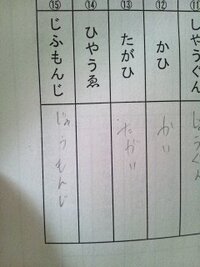 ⑪
しやうぐん
⑫
かひ
かい
⑬
たがひ
たがい
⑭
ひやうゑ
⑮
じふもんじ
じゅうもんじ